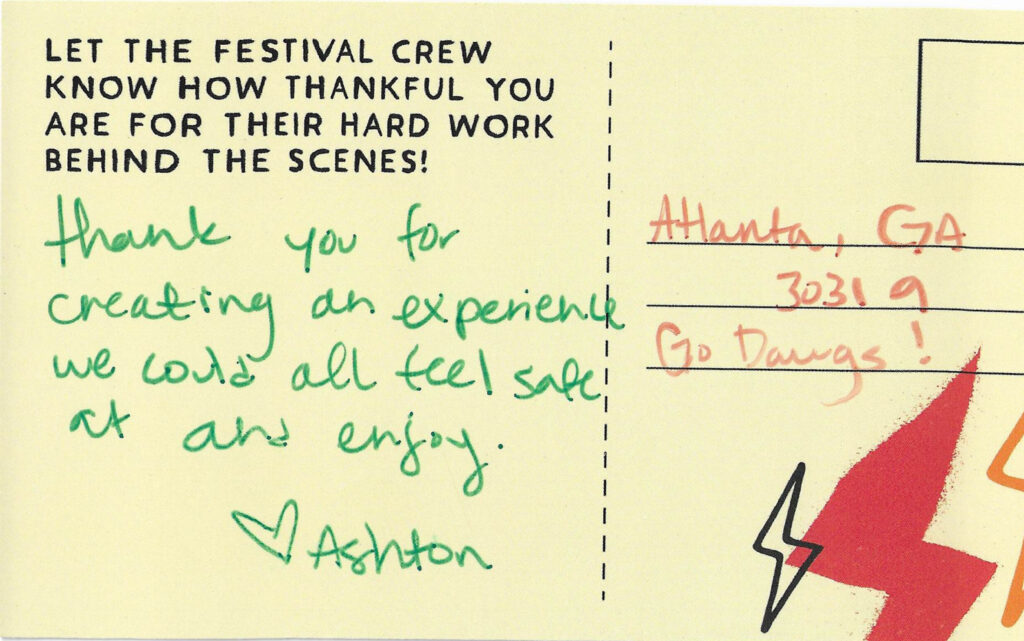 LET THE FESTIVAL CREW
KNOW HOW THANKFUL YOU
ARE FOR THEIR HARD WORK
BEHIND THE SCENES!
thank you for
creating an experience
we could all feel safe
at and enjoy.
♡ Ashton
Atlanta, GA
30319
Go Dawgs!